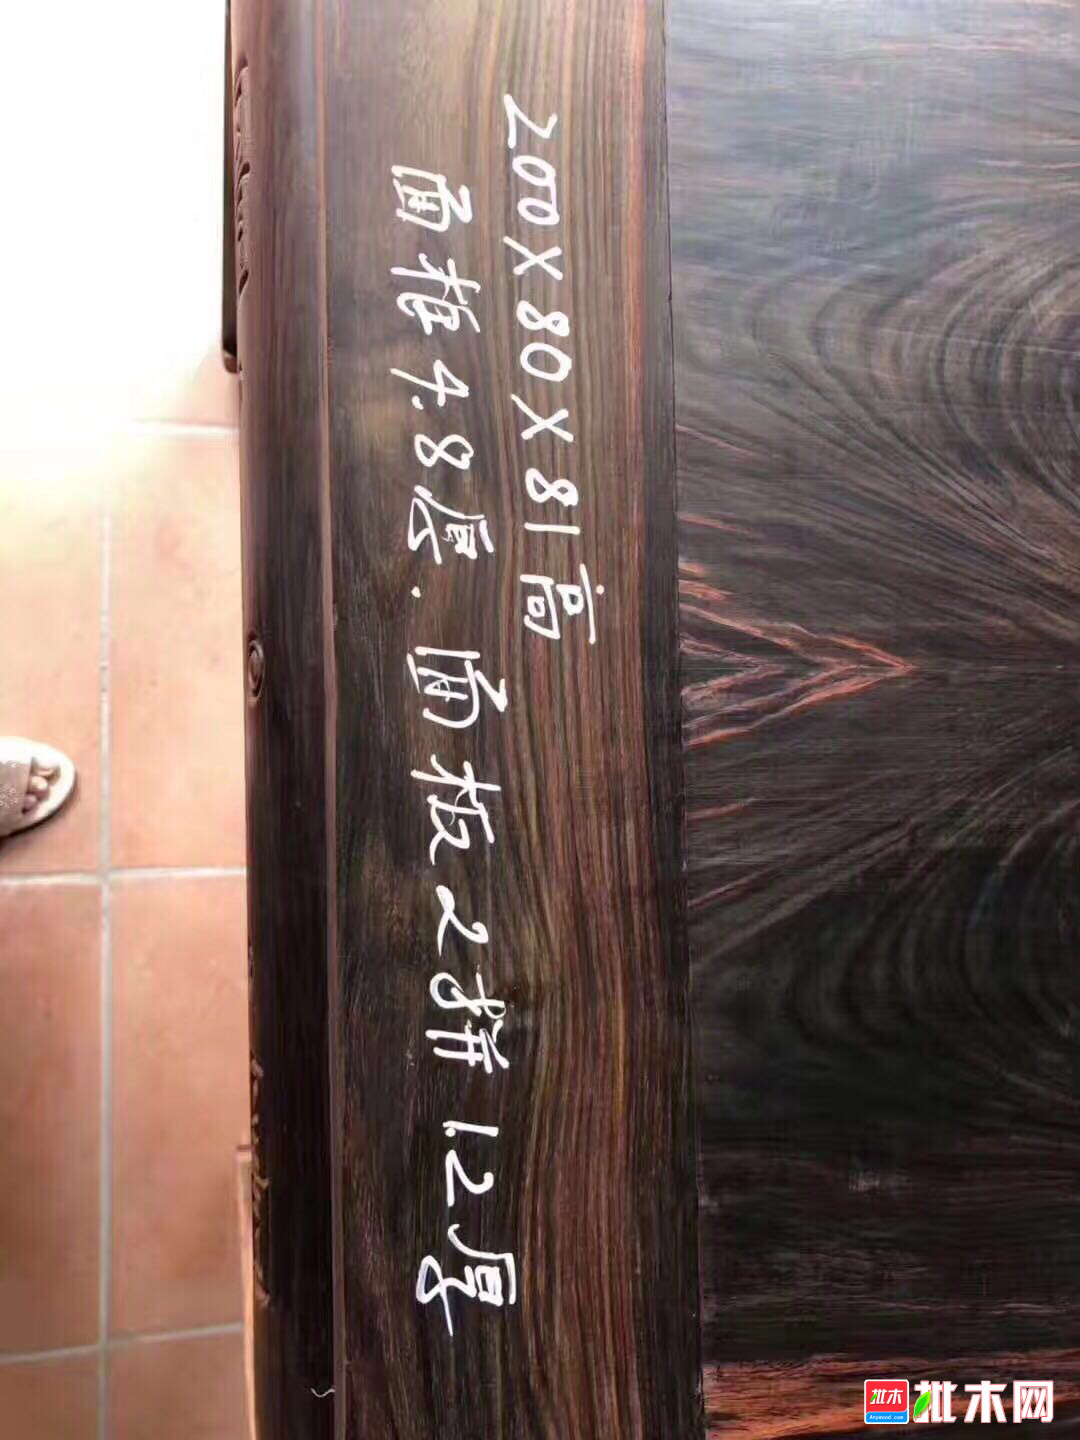 200X80X81高
面框4.8厚.面板2拼1.2厚
批木
Anywood.com
批木网